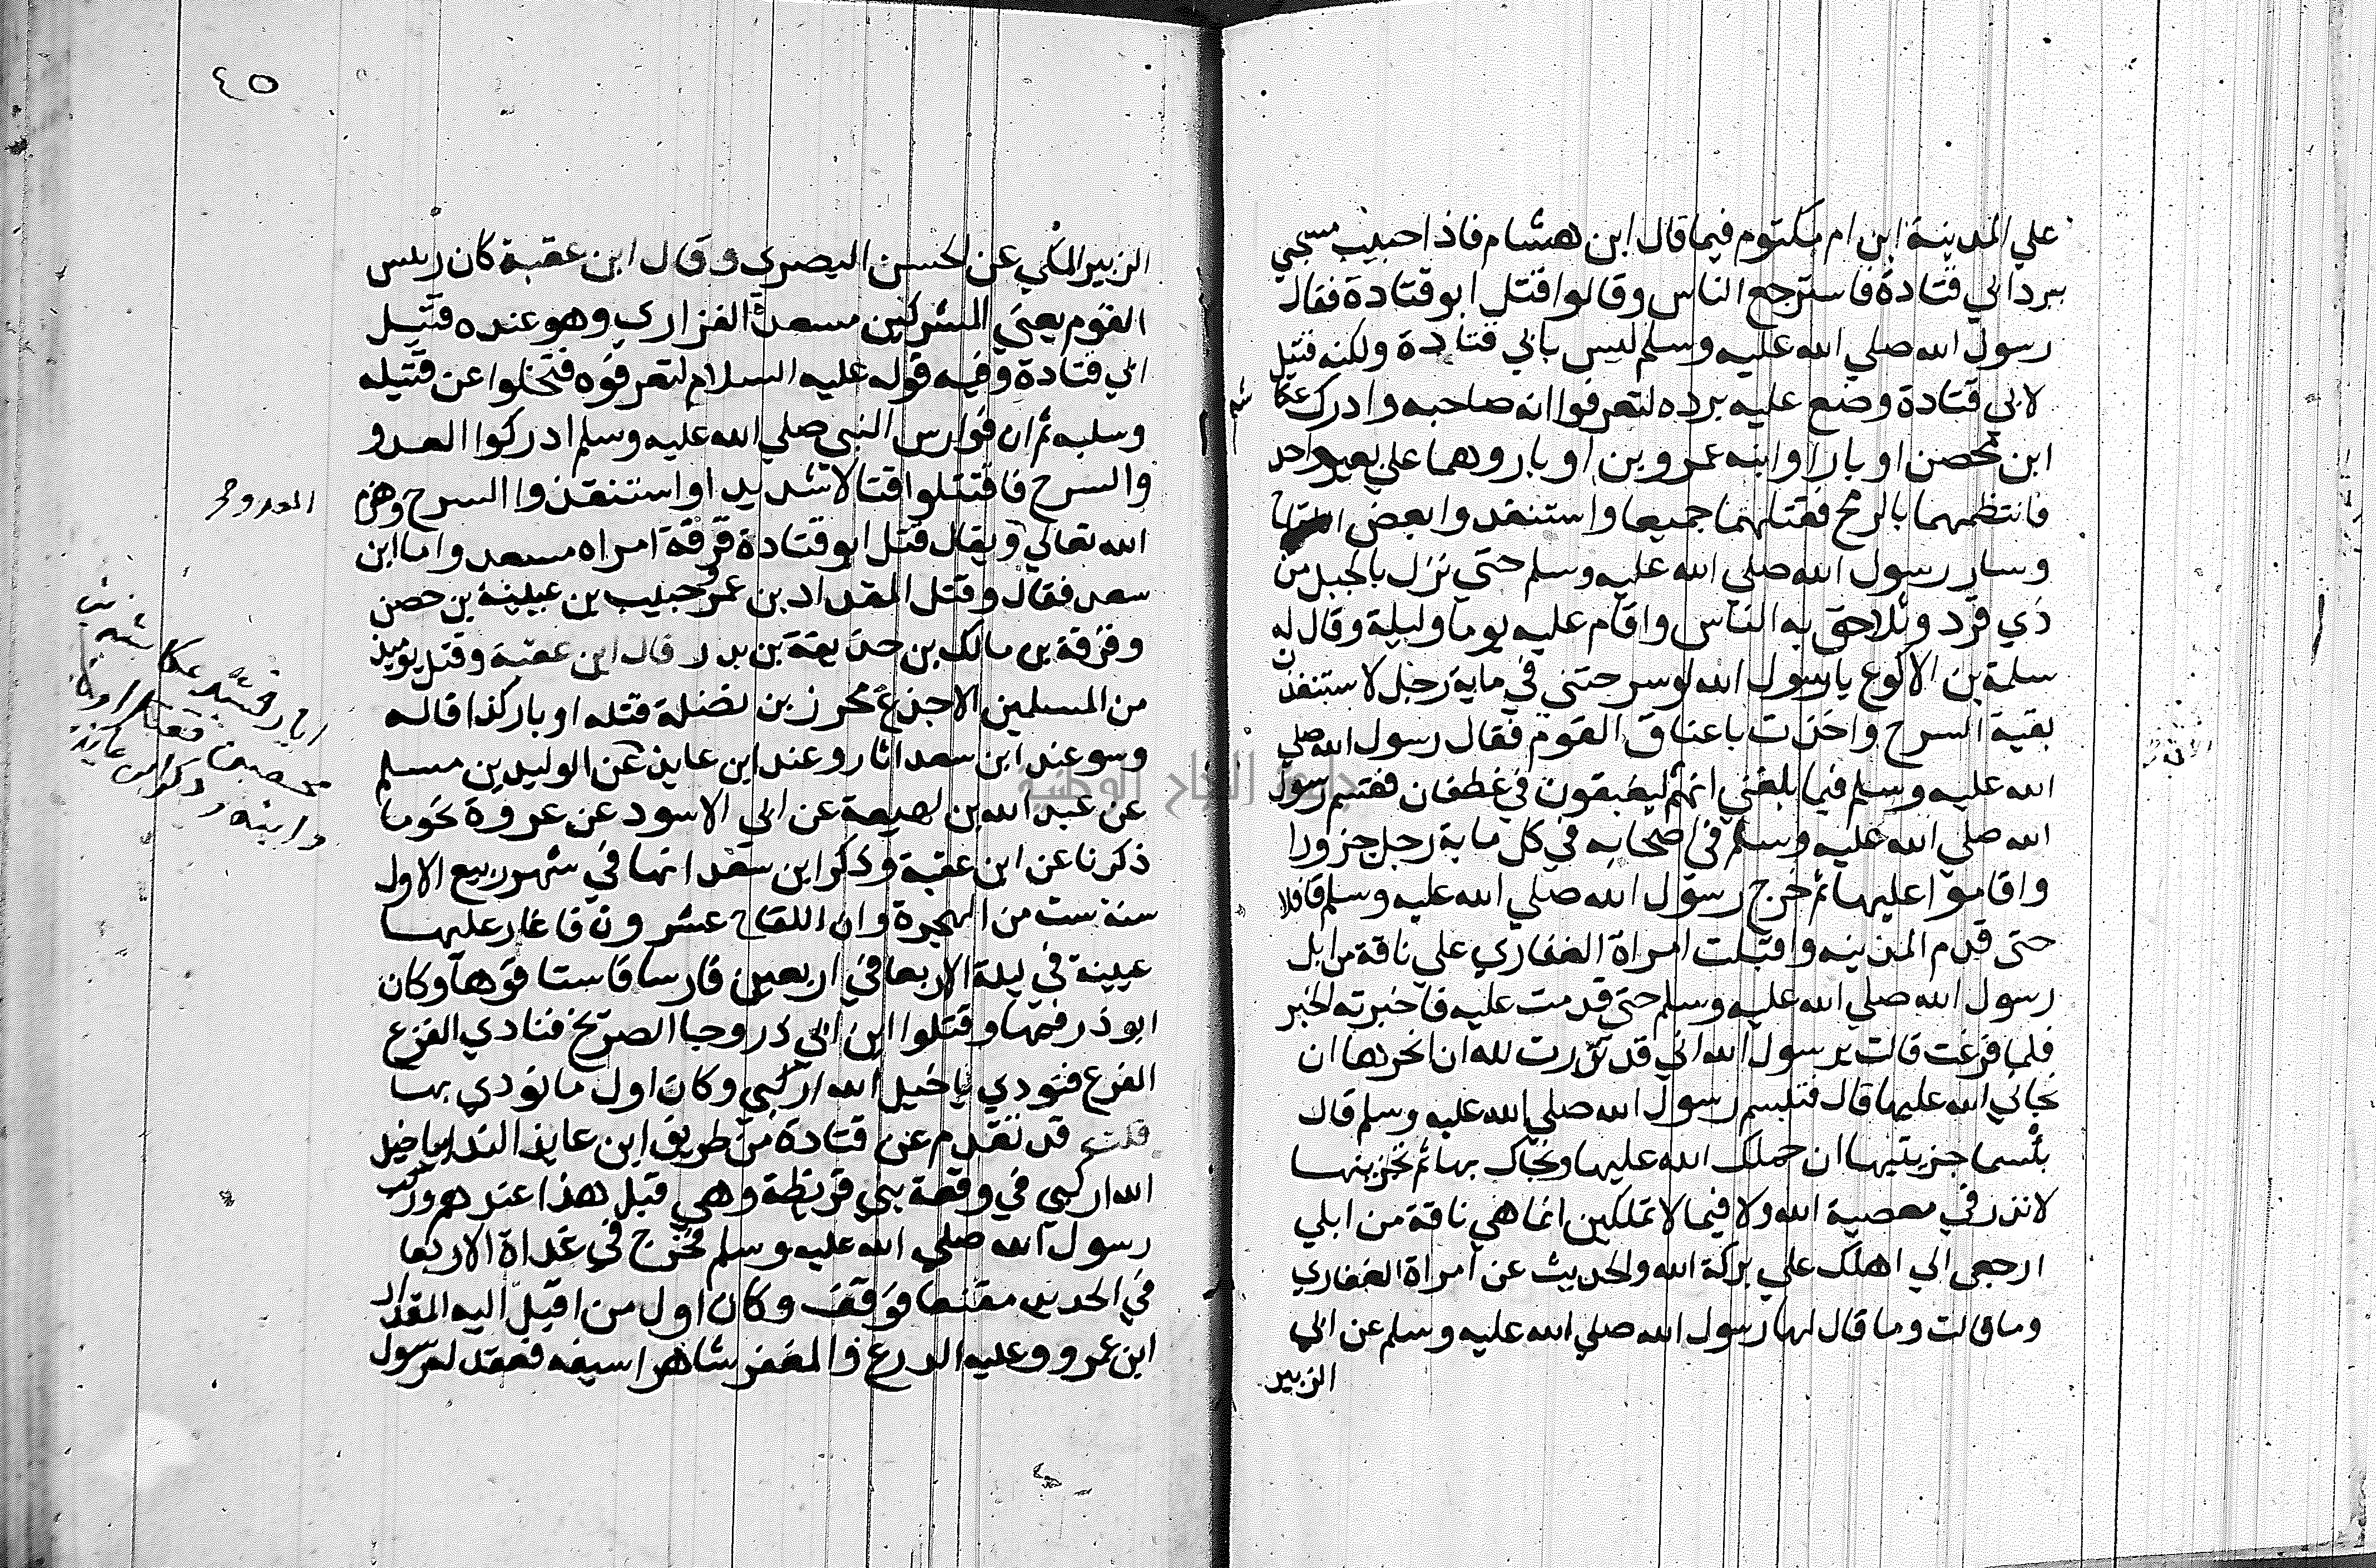 علي المدينة ابن ام مكتوم فيما قال ابن هشام فاذا حبيب مسجي
ببرد ابي قتادة فاسترجع الناس وقالوا قتل ابو قتادة فقال
رسول الله صلي الله عليه وسلم ليس بابي قتادة ولكنه قتيل
لابي قتادة وضع عليه برده لتعرفوا انه صاحبه وادرك عكا شه
ابن محصن اوبارا وابنه عمرو بن اوبار وهما علي بعير واحد
فانتظمهما بالرمح فقتلهما جميعا واستنقدوا بعض
وسار رسول الله صلي الله عليه وسلم حتي نزل بالجبل من
ذي قرد وتلاحق به الناس واقام عليه يوما وليلة وقال له
سلمة بن الاكوع يا رسول الله لو سرحتني في ماية رجل لاستنقذت
بقية السرح واخذت باعناق القوم فقال رسول الله صلي
الله عليه وسلم فيما بلغني انهم ليغبقون في غطفان فقسم رسول
الله صلي الله عليه وسلم في اصحابه في كل ماية رجل جزورا
واقاموا عليها ثم خرج رسول الله صلي الله عليه وسلم قافلا
حتى قدم المدينه واقبلت امراة الغفاري علي ناقة من ابل
رسول الله صلي الله عليه وسلم حتى قدمت عليه فاخبرته الخبر
فلما فرغت قالت يرسول الله اني قد نذرت لله ان انحرها ان
نجاني الله عليها قال فتبسم رسول الله صلي الله عليه وسلم قال
بئسما جزيتيها ان حملك الله عليها ونجاك بها ثم تنحرينها
لا نذر في معصية الله ولا فيما لا تملكين انما هي ناقة من ابلي
ارجعي الي اهلك علي بركة الله والحديث عن امراة الغفاري
وما قالت وما قال لها رسول الله صلي الله عليه وسلم عن ابي
الزبير
٤٥
الزبير المكي عن الحسن البصري وقال ابن عقبة كان رييس
القوم يعني المشركين مسعدة الفزاري وهو عنده قتيل
ابي قتادة وفيه قوله عليه السلام لتعرفوه فتخلوا عن قتيله
وسلبه ثم ان فوارس النبي صلي الله عليه وسلم ادركوا العدو
والسرح فاقتتلوا قتالا شديدا واستنقذوا السرح وهزم
الله تعالي ويقال قتل ابو قتادة قرفة امراه مسعد واما ابن
سعد فقال وقتل المقداد بن عمرو حبيب بن عيينة بن حصن
وقرفة بن مالك بن حذيفة بن بدر قال ابن عقبة وقتل يوميذ
من المسلمين الاجذع محرز بن نضلة قتله اوبار كذا قاله
وسو عند ابن سعد اثار وعند ابن عايذ عن الوليد بن مسلم
عن عبد الله بن لهيعة عن ابي الاسود عن عروة نحوما
ذكرنا عن ابن عقبة وذكر ابن سعد انها في شهر ربيع الاول
سنة ست من الهجرة وان اللقاح عشرون فاغار عليها
عيينة في ليلة الاربعا في اربعين فارسا فاستاقوها وكان
ابو ذر فيها وقتلوا ابن ابي ذر وجا الصريخ فنادي الفزع
الفزع فنودي يا خيل الله اركبي وكان اول ما نودي بها
قلت قد تقدم عن قتادة من طريق ابن عايذ الندا يا خيل
الله اركبي في وقعة بني قريظة وهي قبل هذا عندهم وركب
رسول الله صلي الله عليه وسلم فخرج في غداة الاربعا
في الحديد مقنعا فوقف وكان اول من اقبل اليه المقداد
ابن عمرو وعليه الدرع والمغفر شاهرا سيفه فعقد له رسول
جامعة النجاح الوطنية